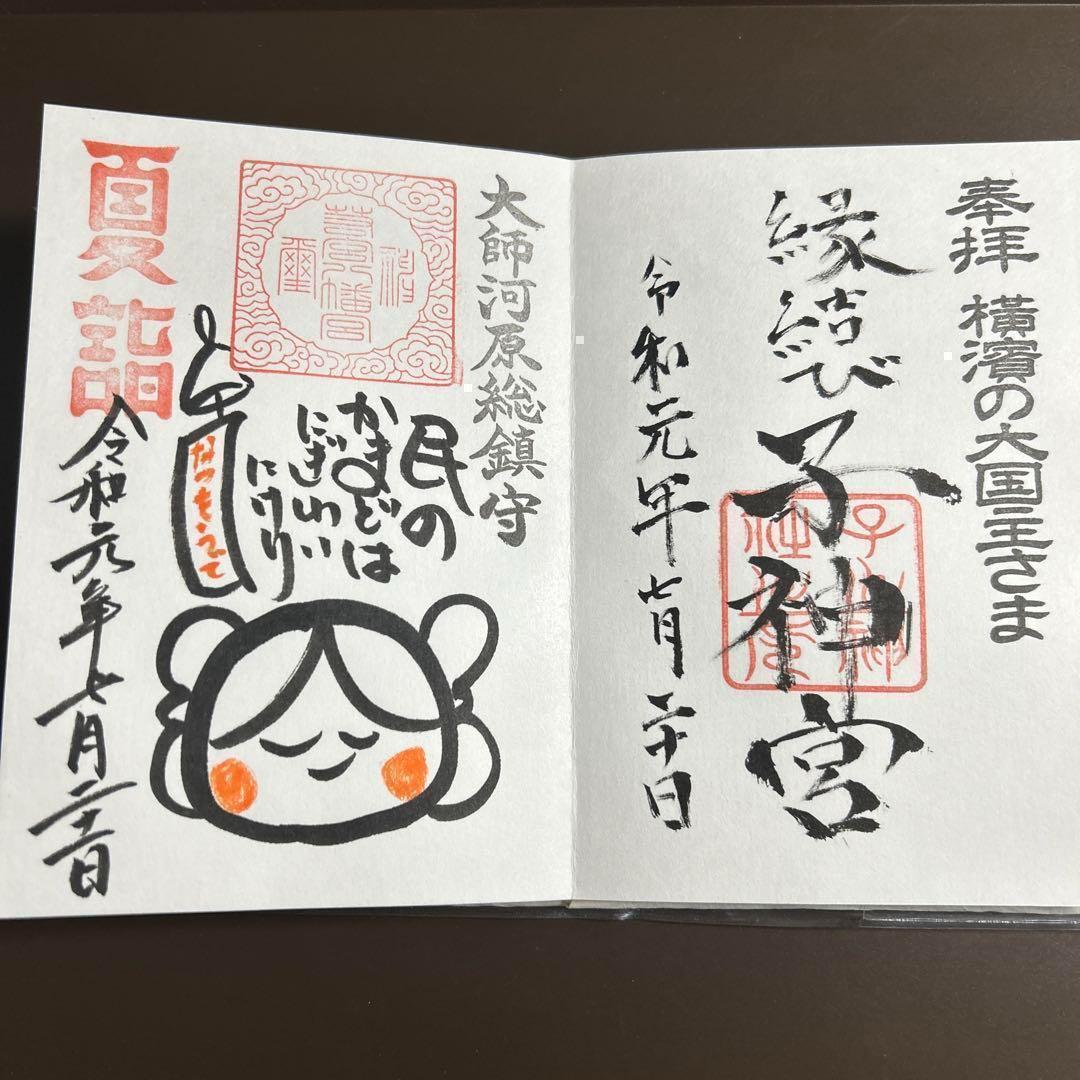 奉拝 横濱の大国主さま
縁結び 子神宮
令和元年七月二十日
大師河原総鎮守
民の
かまどは
にぎわい
にけり
なつもうで
夏詣
令和元年七月二十一日